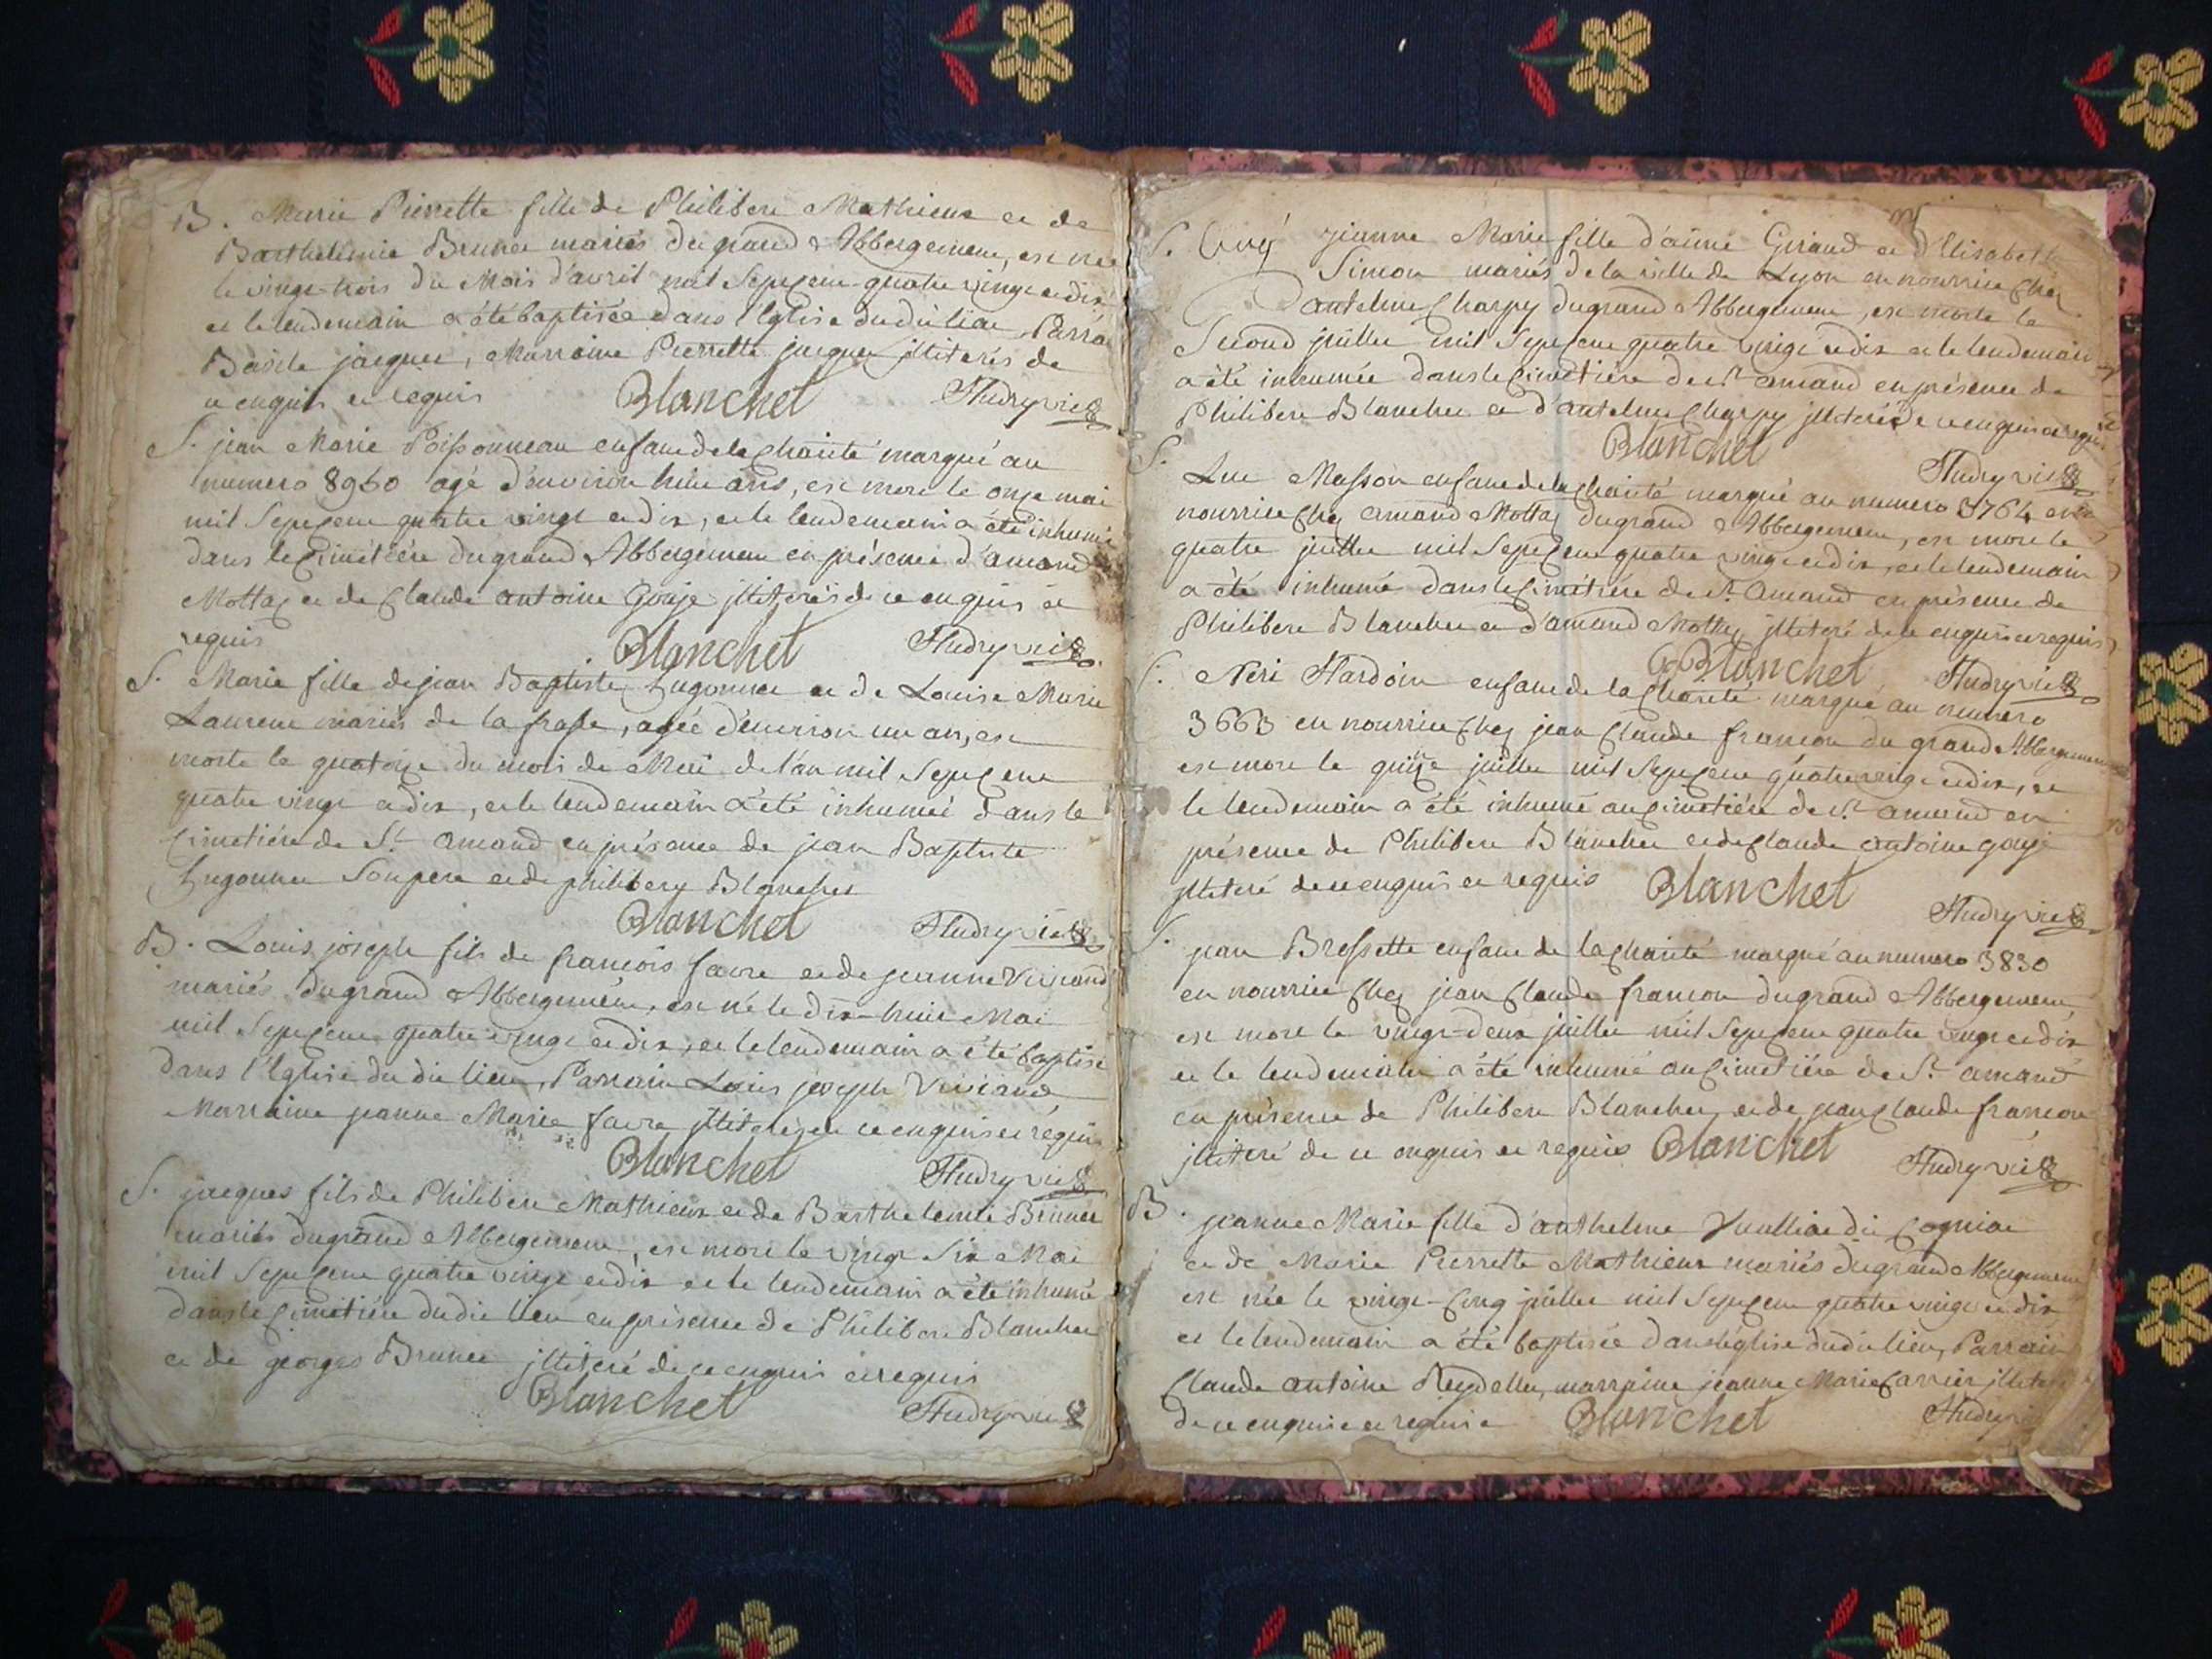 B. Marie Pierrette fille de Philibert Mathieux et de
Barthelemie Brunet mariés du grand Abbergement, est née
le vingt-trois du Mois d'avril mil Sept Cent quatre vingt et dix
et le lendemain a été baptisée dans l'Eglise du dit lieu, Parrain
Basile jacquet, Marraine Pierrette jacquet jlliterés de
ce enquis et requis Blanchet Hudry vic
S. jean Marie Poissonneau enfant de la Charité marqué au
numero 8960 agé d'environ huit ans, est mort le onze mai
mil Sept Cent quatre vingt et dix, et le lendemain a été inhumé
dans le Cimétière du grand Abbergement en présence d'amand
Mottaz et de Claude antoine Gonje jlliterés de ce enquis et
requis Blanchet Hudry vic
S. Marie fille de jean Baptiste et de Louise Marie
Laurent mariés de la frasse, agée d'environ un an, est
morte le quatorze du mois de Mai de l'an mil Sept Cent
quatre vingt et dix, et le lendemain a été inhumée dans le
Cimetière de St. amand en présence de jean Baptiste
Son pere et de philibert Blanchet
Blanchet Hudry vic
B. Louis joseph fils de francois favre et de jeanne Viviand
mariés du grand Abbergement, est né le dix-huit Mai
mil Sept Cent quatre vingt et dix, et le lendemain a été baptisé
dans l'Eglise du dit lieu, Parrain Louis joseph Viviand
Marraine jeanne Marie favre jlliterés de ce enquis et requis
Blanchet Hudry vic
S. jacques fils de Philibert Mathieux et de Barthelemie Brunet
mariés du grand Abbergement, est mort le vingt Six Mai
mil Sept Cent quatre vingt et dix et le lendemain a été inhumé
dans le Cimétière du dit lieu en présence de Philibert Blanchet
et de georges Brunet jlliteré de ce enquis et requis
Blanchet Hudry vic
S. jeanne Marie fille d'aimé Giraud et d'Elisabeth
Simon mariés de la ville de Lyon en nourrice Chez
antelme Charpy du grand Abbergement, est morte le
Second juillet mil Sept Cent quatre vingt et dix et le lendemain
a été inhumée dans le Cimétière de St. amand en présence de
Philibert Blanchet et d'antelme Charpy jlliteré de ce enquis et requis
Blanchet Hudry vic
S. Luc Masson enfant de la Charité marqué au numero 3764 en
nourrice Chez amand Mottaz du grand Abbergement, est mort le
quatre juillet mil Sept Cent quatre vingt et dix, et le lendemain
a été inhumé dans le Cimétière de St. amand en présence de
Philibert Blanchet et d'amand Mottaz jlliteré de ce enquis et requis
Blanchet Hudry vic
S. Neri Hardoin enfant de la Charité marqué au numero
3663 en nourrice Chez jean Claude francon du grand Abbergement
est mort le quinze juillet mil Sept Cent quatre vingt et dix, et
le lendemain a été inhumé au Cimetière de St. amand en
présence de Philibert Blanchet et de Claude antoine gonje
jlliteré de ce enquis et requis Blanchet Hudry vic
S. jean Brossette enfant de la Charité marqué au numero 3830
en nourrice Chez jean Claude francon du grand Abbergement,
est mort le vingt-deux juillet mil Sept Cent quatre vingt et dix
et le lendemain a été inhumé au Cimetière de St. amand
en présence de Philibert Blanchet, et de jean Claude francon
jlliteré de ce enquis et requis Blanchet Hudry vic
B. jeanne Marie fille d'anthelme Vuilliat dit Cogniat
et de Marie Pierrette Mathieux mariés du grand Abbergement
est née le vingt-Cinq juillet mil Sept Cent quatre vingt et dix
et le lendemain a été baptisée dans l'église du dit lieu, Parrain
Claude antoine Reydellet, marraine jeanne Marie Carrier
de ce enquis et requis Blanchet Hudry